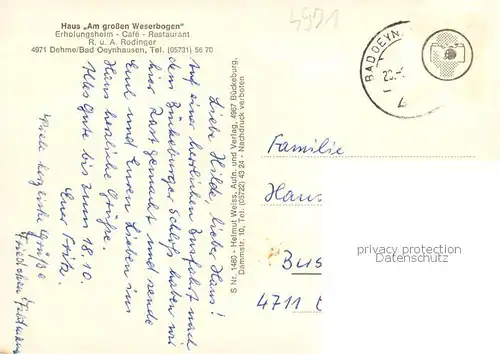 Haus „Am großen Weserbogen"
Erholungsheim - Café - Restaurant
R. u. A. Rodinger
4971 Dehme/Bad Oeynhausen, Tel. (05731) 56 70
BAD OEYN
Liebe Hilde, lieber Hans!
Auf einer herrlichen Rundfahrt nach
dem Bückeburger Schloß haben wir
hier Rast gemacht und sende
Euch und Euren Lieben im
Hans herzliche Grüße.
Alles Gute bis zum 18.10.
Euer Fritz.
Viele herzliche Grüße
Friedchen
S Nr. 1480 - Helmut Weiss, Aufn. und Verlag, 4967 Bückeburg,
Dammstr. 10, Tel. (05722) 43 24 - Nachdruck verboten
Familie
Hans
Bus
4711
privacy protection
Datenschutz